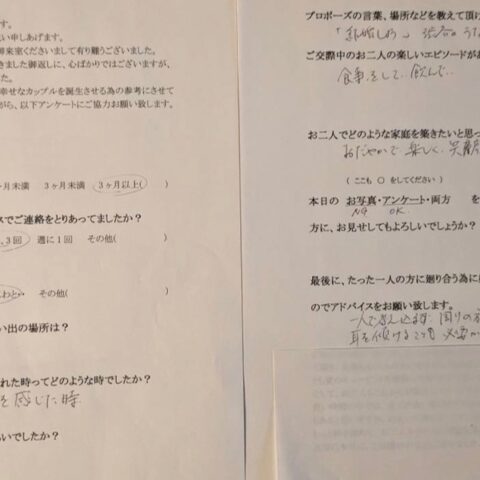 す。
い申しあげます。
御来室くださいまして有り難うございました。
きました御返しに、心ばかりではございますが、
た。
幸せなカップルを誕生させる為の参考にさせて
がら、以下アンケートにご協力お願い致します。
ヶ月未満 3ヶ月未満 3ヶ月以上(
スでご連絡をとりあってましたか?
、3回 週に1回 その他(
わと その他(
い出の場所は?
れた時ってどのような時でしたか?
を感じた時
いでしたか?
プロポーズの言葉、場所などを教えて頂け
「結婚しよう」
ご交際中のお二人の楽しいエピソードがあ
食事をして、飲んで…
お二人でどのような家庭を築きたいと思っ
おだやかで、楽しく、笑顔
( ここも ○ をしてください )
本日の お写真・アンケート・両方 を
NG OK
方に、お見せしてもよろしいでしょうか?
最後に、たった一人の方に廻り合う為に
のでアドバイスをお願い致します。
一人で 周りの
耳を傾けることも 必要か